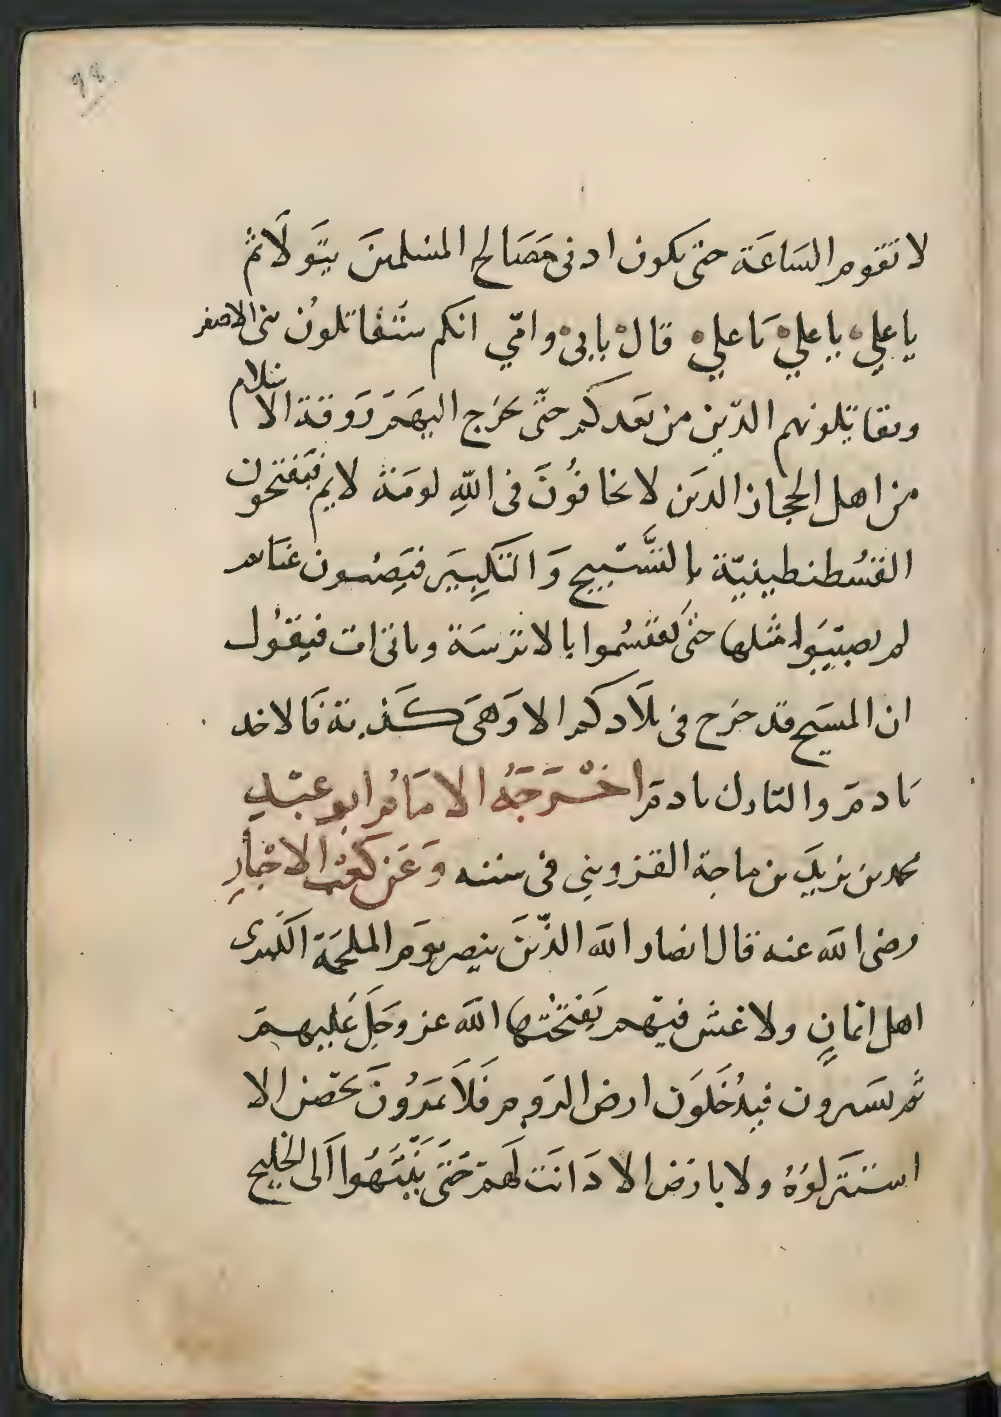 98
لا تقوم الساعة حتى يكون ادنى مصالح المسلمين بتولا ثم
يا علي يا علي يا علي قال بابي وامي انكم ستقاتلون بنى الاصفر
ويقاتلونهم الذين من بعدكم حتى تخرج اليهم روقة الاسلام
من اهل الحجاز الذين لا يخافون في الله لومة لايم فيفتحون
القسطنطينية بالتسبيح والتكبير فيصيبون غنايم
لم يصيبوا مثلها حتى يقتسموا بالاترسة وياتى ات فيقول
ان المسيح قد خرج في بلادكم الا وهى كذبة فالاخذ
نادم والتارك نادم اخرجه الامام ابو عبد الله
محمد بن يزيد بن ماجة القزويني في سننه وعن كعب الاحبار
رضى الله عنه قال انصار الله الذين ينصر بهم يوم الملحمة الكبرى
اهل ايمان ولا غش فيهم يفتحها الله عز وجل عليهم
ثم يسيرون فيدخلون ارض الروم فلا يمرون بحصن الا
استنزلوه ولا بارض الا دانت لهم حتى ينتهوا الى الخليج